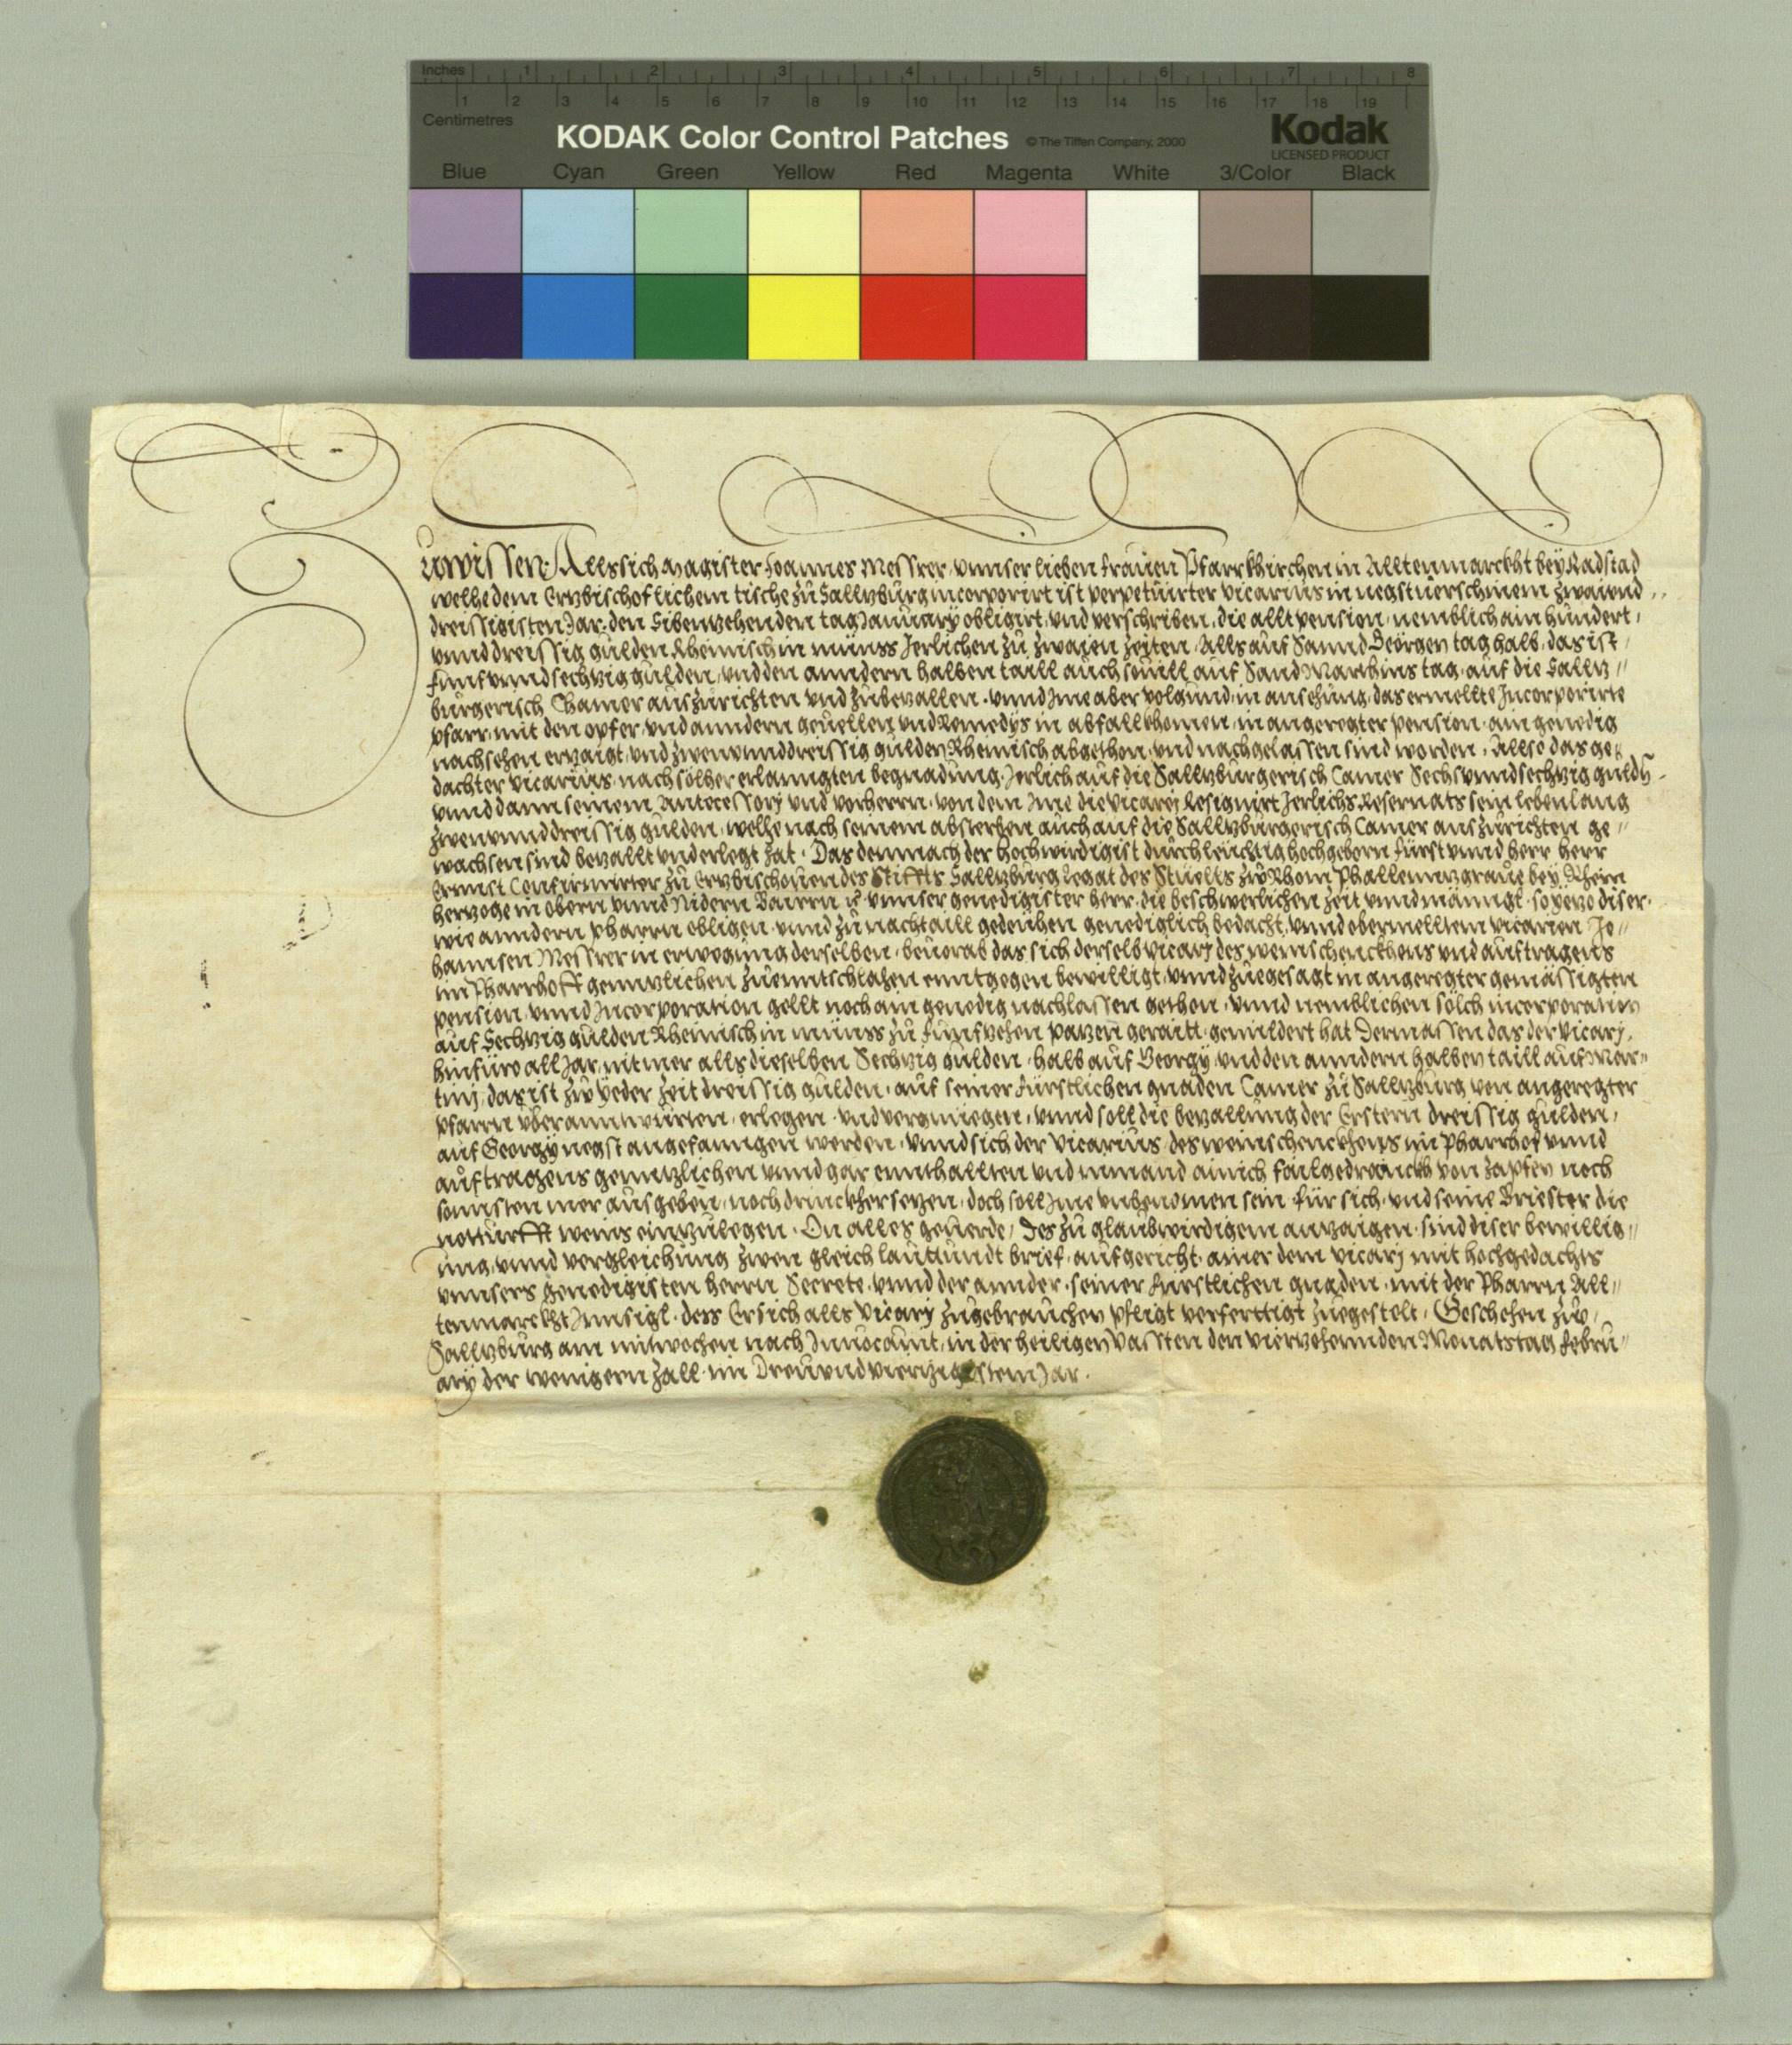 Inches 1 2 3 4 5 6 7 8
1 2 3 4 5 6 7 8 9 10 11 12 13 14 15 16 17 18 19
Centimetres
KODAK Color Control Patches © The Tiffen Company, 2000 Kodak
LICENSED PRODUCT
Blue Cyan Green Yellow Red Magenta White 3/Color Black
Zuwissen: Alls sich Magister Joannes Messrer, vnnser lieben frauen Pfarrkhirchen in Alltenmarckht bey Radstad
welhe dem Ertzbischoflichem tische zu Salltzburg incorporirt ist perpetuirter vicarius in negstuerschinem zwaiund
dreissigisten Jar, den Sibentzehenden tag January obligirt, vnd verschriben, die allt pension, nemblich ain hundert,
vnnd dreissig gulden Rheinisch in münss Jerlichen zu zwaien zeiten, Alls auf Sannd Georgen tag halb, das ist
funfvnndsechtzig gulden, vnd den anndern halben taill auch souill auf Sand Marthins tag, auf die Salltz
burgerisch Chamer auszurichten vnd zubetzallen, vnnd Ime aber volgund, in ansehung, das ermellte Incorporirte
pfarr, mit den opfer, vnd anndern geuellen, vnd Remedys in abfall khomen, in angeregter pension, ain genedig
nachsehen ertzaigt, vnd zwenvnnddreissig gulden Rheinisch abgethon, vnd nachgelassen sind worden, Allso das ge
dachter vicarius, nach sölher erlanngten begnadung, Jerlich auf die Salltzburgerisch Camer Sechsvnndsechtzig guldn
vnnd dann seinem Antecessory vnd vorherrn, von dem Ime die vicarej Resignirt Jerlichs Reseruats sein lebenlang
zwenvnnddreissig gulden, welhe nach seinem absterben auch auf die Salltzburgerisch Camer auszurichten ge
wachsen sind betzallt vnd erlegt hat. Das demnach der hochwirdigist durchleuchtig hochgeborn fürst vnnd herr, herr
Ernnst Confirmirter zu Ertzbischouen des Stiffts Salltzburg legat des Stuells zw Rhom Phallenntzgraue bey Rhein
hertzoge in Obern vnnd Nidern Bairrn &c vnnser genedigister herr, die beschwerlichen zeit vnnd männgl, so yetzo diser,
wie anndern pharrn obligen, vnnd zu nachtaill gedeuhen genediglich bedacht, vnnd obermelltem vicarien Jo
hannsen Messrer in erwegung derselben, beuorab das sich derselb vicarj des weinschenckhens vnd auftragens
im Pharrhoff genntzlichen zuenntschlahen enntgegen bewilligt, vnnd zuegesagt in angeregter gemässigten
pension, vnnd Incorporation gellt noch ain genedig nachlassen gethon, vnnd nemblichen sölch incorporation
auf Sechtzig gulden Rheinisch in münss zu funftzehen patzen geraitt, gemildert hat Dermassen das der vicarj,
hinfüro all Jar, nit mer alls dieselben Sechtzig gulden, halb auf Georgy, vnd den anndern halben taill auf Mar
tinj, das ist zw yeder zeit dreissig gulden, auf seiner fürstlichen gnaden Camer zu Salltzburg von angeregter
pfarrn vberanntwurten, erlegen, vnd vergnüegen, vnnd soll die betzallung der Erstern dreissig gulden,
auf Georgy negst angefanngen werden, vnnd sich der vicarius, des weinschenckhens im Pharrhof vnnd
auftragens genntzlichen vnnd gar ennthallten vnd nimand ainich failgedranckh von zapfen noch
sonnsten mer ausgeben, noch drinckher setzen, doch soll Ime vnbenomen sein für sich, vnd seine Briester die
notturfft weins einzulegen. On alles geuerde, Des zu glaubwirdigem anzaigen, sind diser bewillig
ung, vnnd vergleichung zwen gleich lautundt brief, aufgericht, ainer dem vicarj mit hochgedachts
vnnsers genedigisten herrn Secrete, vnnd der annder, seiner fürstlichen gnaden, mit der Pharrn All
tenmarckht Innsigl, dess Er sich alls vicary zugebrauchen pfligt verferttigt zuegestelt, Geschehen zw
Salltzburg am mitwochen nach Inuocauit, in der heiligen vassten den viertzehennden Monatstag Febru
ary der wenigern zall im Dreuvndviertzigistem Jar.